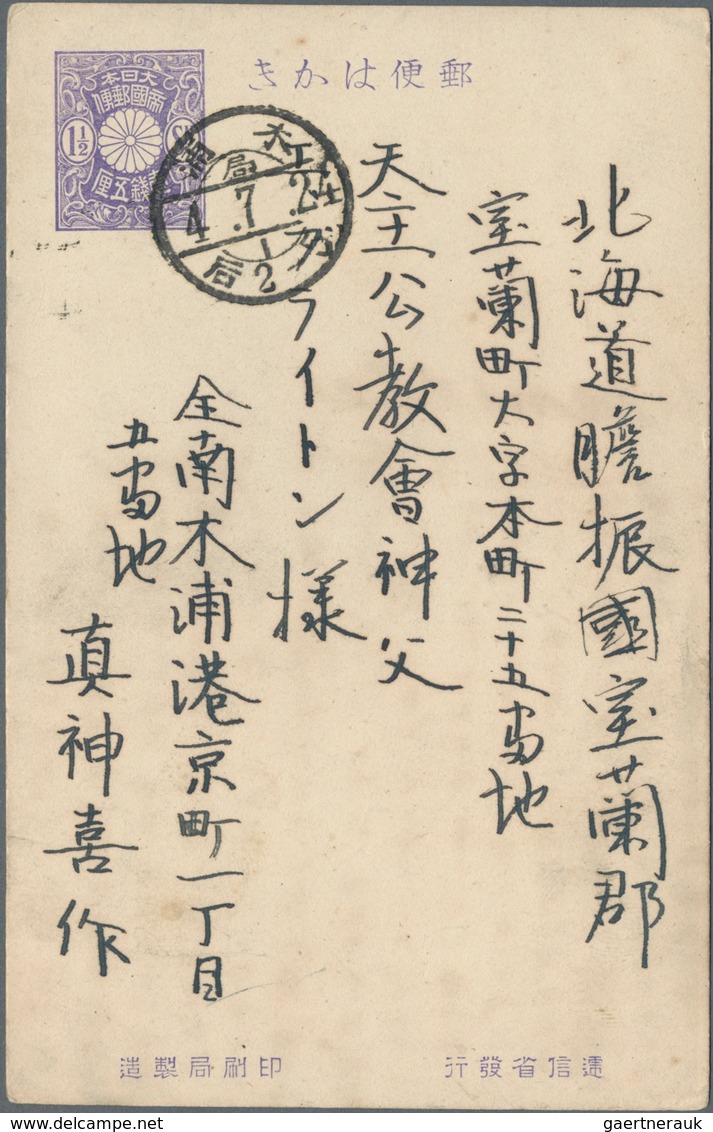 郵便はかき
大日本
帝國郵便
1½ Sn
壹錢五厘
木浦局
4.7.2
后 1-2
北海道膽振國室蘭郡
室蘭町大字本町二十五畨地
天主公教會神父
ライトン様
全南木浦港京町一丁目
五畨地
真神喜作
逓信省發行
印刷局製造
gaertnerauk